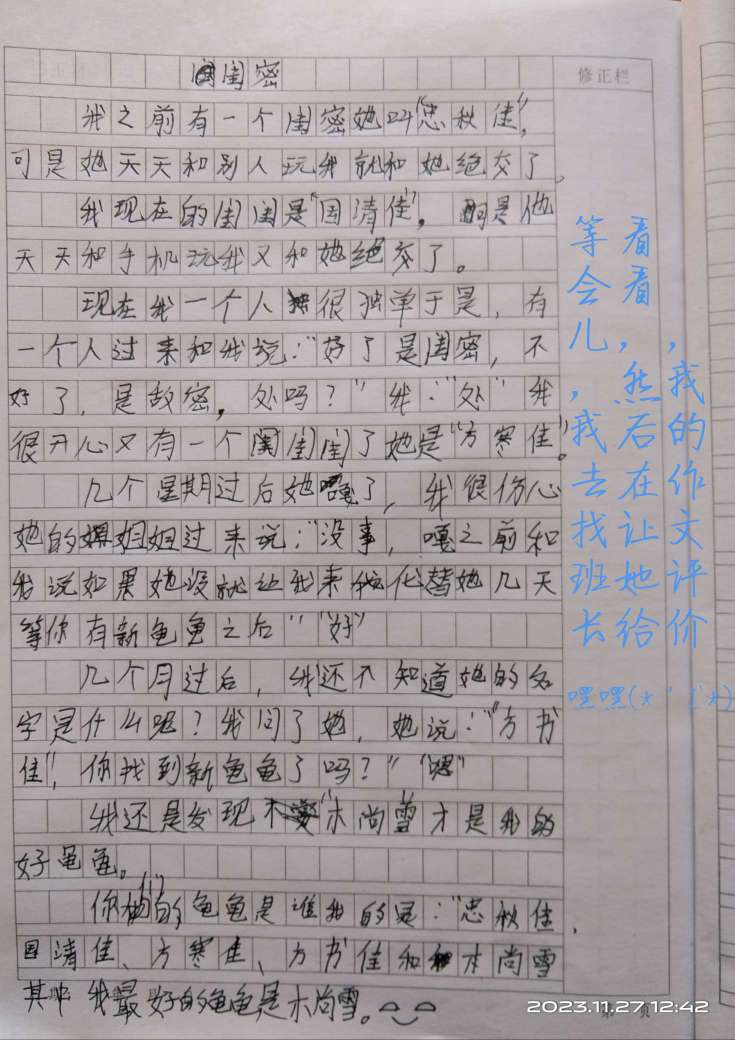 闺闺密
修正栏
我之前有一个闺密她叫“忠秋佳”,
可是她天天和别人玩我就和她绝交了。
我现在的闺闺是“国清佳”,可是他
天天和手机玩我又和她绝交了。
现在我一个人很独单于是,有
一个人过来和我说:“好了是闺密,不
好了,是敌密,处吗?”我:“处”我
很开心又有一个闺闺了她是“方寒佳”。
几个星期过后她嘎了,我很伤心
她的姐姐过来说:“没事,嘎之前和
我说如果她没就让我来代替她几天
等你有新龟龟之后”“好”
几个月过后,我还不知道她的名
字是什么呢?我问了她,她说:“方书
佳”,你找到新龟龟了吗?”“嗯”
我还是发现“木尚雪才是我的
好龟龟。
你们的龟龟是谁我的是:“忠秋佳、
国清佳、方寒佳、方书佳和木尚雪
其中我最好的龟龟是木尚雪。
等会儿,我去找班长
看看,然后在让她给
,我的作文评价
嘿嘿
2023.11.27 12:42
第 页